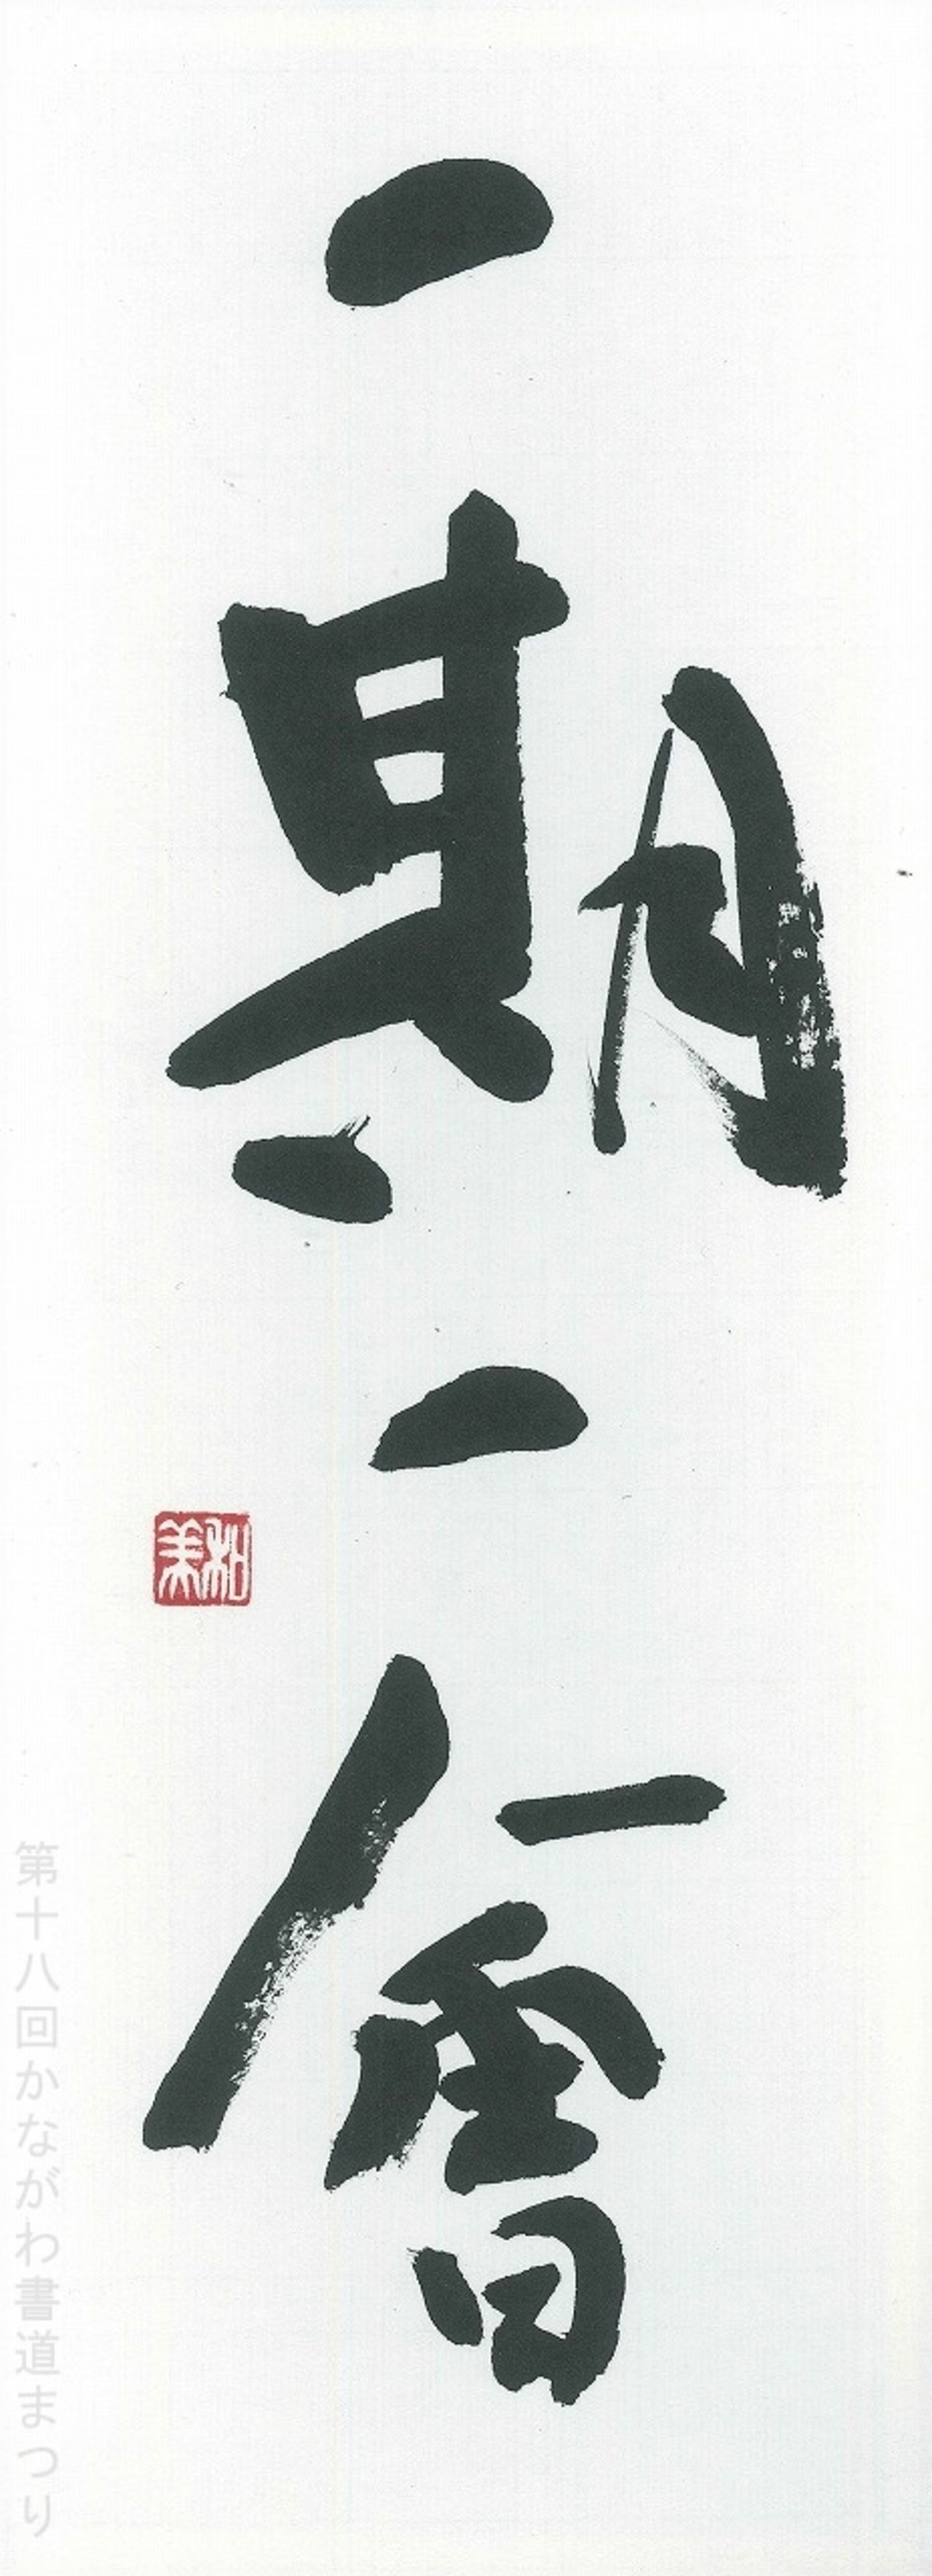 一期一會
和美
第十八回かながわ書道まつり